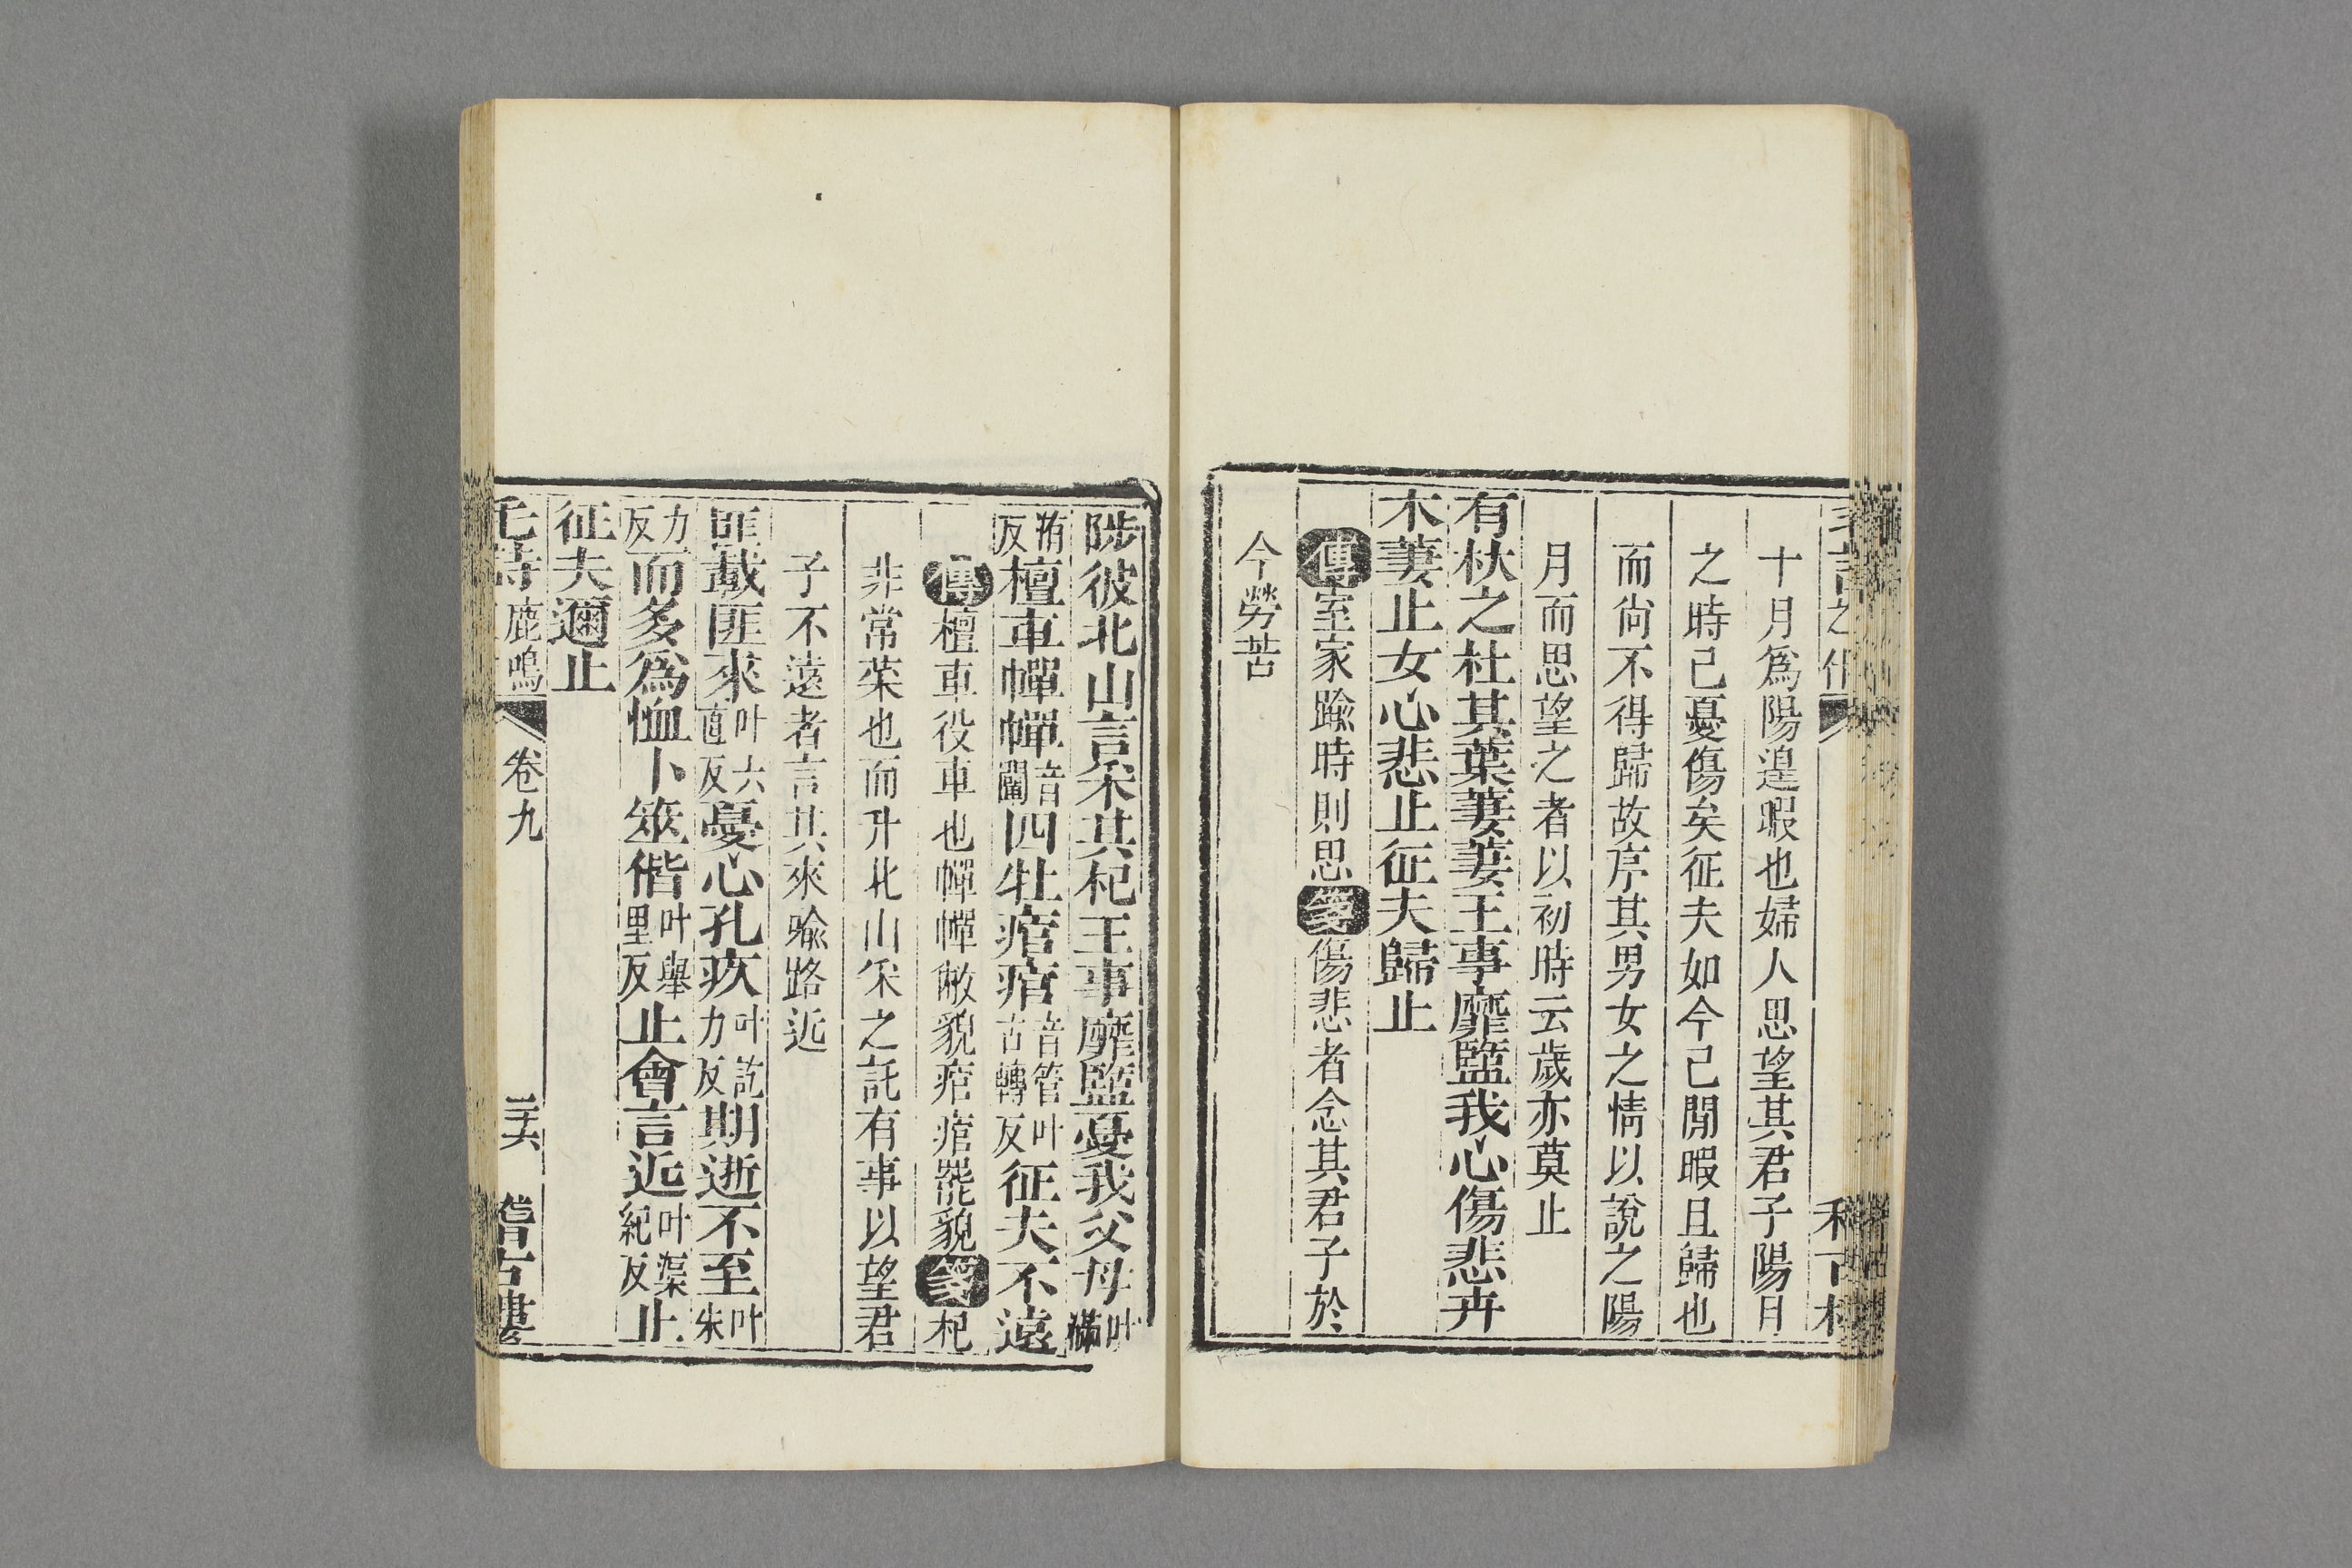 十月爲陽遑暇也婦人思望其君子陽月
之時已憂傷矣征夫如今已閒暇且歸也
而尙不得歸故序其男女之情以說之陽
月而思望之者以初時云歲亦莫止
有杕之杜其葉萋萋王事靡盬我心傷悲卉
木萋止女心悲止征夫歸止
傳室家踰時則思箋傷悲者念其君子於
今勞苦
陟彼北山言采其杞王事靡盬憂我父母叶滿
洧反檀車幝幝音闡四牡痯痯音管叶古轉反征夫不遠
傳檀車役車也幝幝敝貌痯痯罷貌箋杞
非常菜也而升北山采之託有事以望君
子不遠者言其來喩路近
匪載匪來叶六直反憂心孔疚叶訖力反期逝不至叶朱
力反而多爲恤卜筮偕叶舉里反止會言近叶渠紀反止
征夫邇止
毛詩 鹿鳴 卷九 三十六 稽古樓